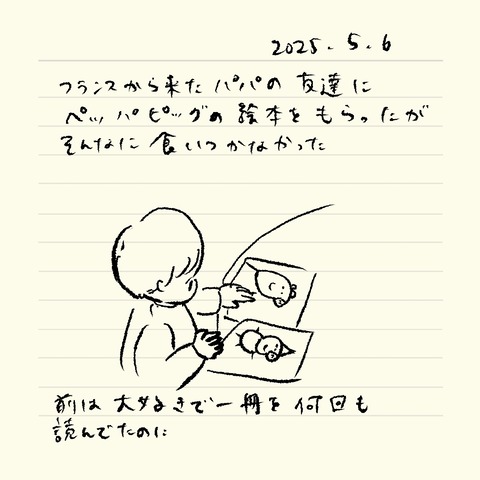 2025.5.6
フランスから来たパパの友達に
ペッパピッグの絵本をもらったが
そんなに食いつかなかった
前は大好きで一冊を何回も
読んでたのに